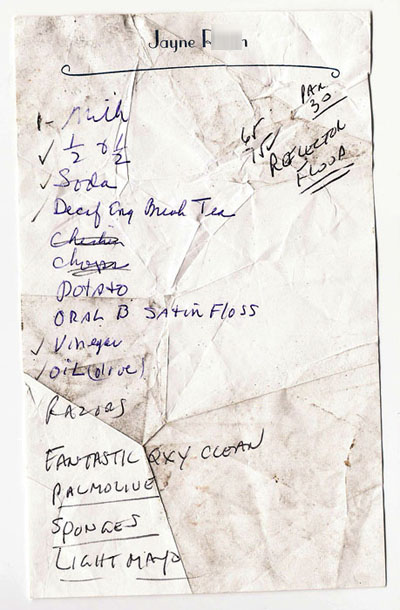 Jayne
Milk
1/2 & 1/2
Soda
Decaf Eng Break Tea
Chicken
Chops
POTATO
ORAL B SATIN FLOSS
Vinegar
OIL (olive)
RAZORS
FANTASTIC OXY CLEAN
PALMOLIVE
SPONGES
LIGHT MAYO
PAR
30
65
REFLECTOR
FLOOD